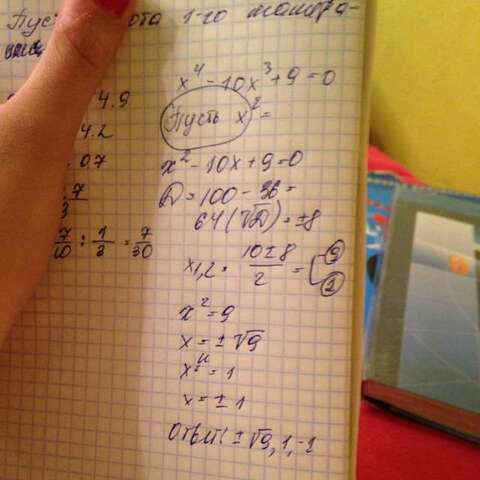 Пусть ота 1-го
4.9
4.2
.07
7
3
7/10 : 1/3 = 7/30
x⁴ - 10x³ + 9 = 0
Пусть x² =
x² - 10x + 9 = 0
D = 100 - 36 =
64 (√D) = ±8
x1,2 = 10±8/2 = 9
1
x² = 9
x = ±√9
x² = 1
x = ±1
Ответ: ±√9, 1, -1